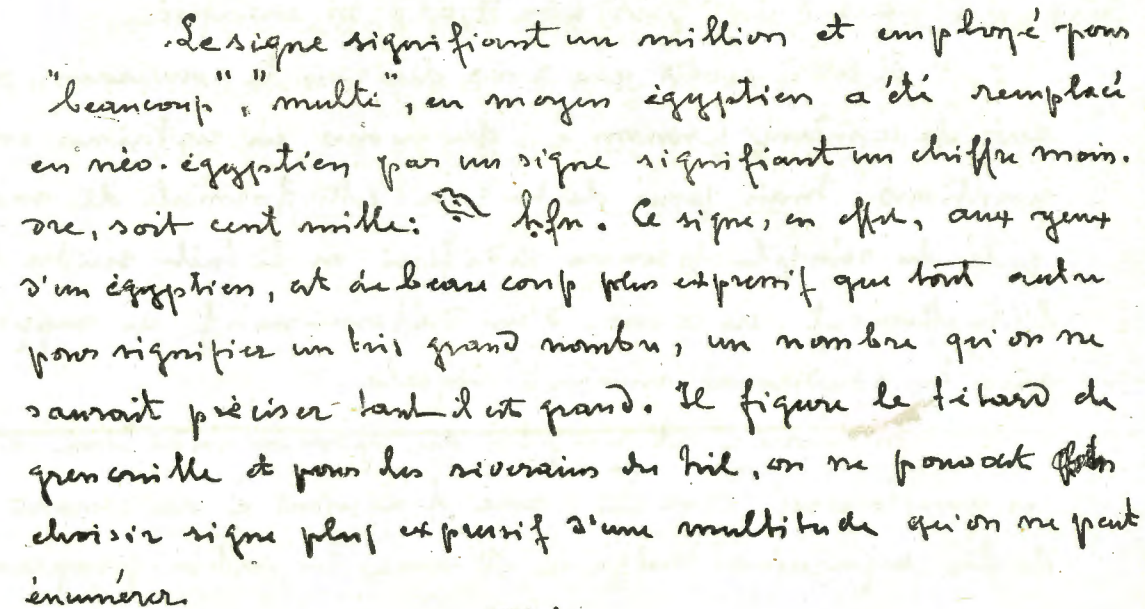 Le signe signifiant un million et employé pour
"beaucoup", "multi", en moyen égyptien a été remplacé
en néo-égyptien par un signe signifiant un chiffre moin-
dre, soit cent mille: 𓆐 ḥfn. Ce signe, en effet, aux yeux
d'un égyptien, est de beaucoup plus expressif que tout autre
pour signifier un très grand nombre, un nombre qu'on ne
saurait préciser tant il est grand. Il figure le têtard de
grenouille et pour les riverains du Nil, on ne pouvait
choisir signe plus expressif d'une multitude qu'on ne peut
énumérer.